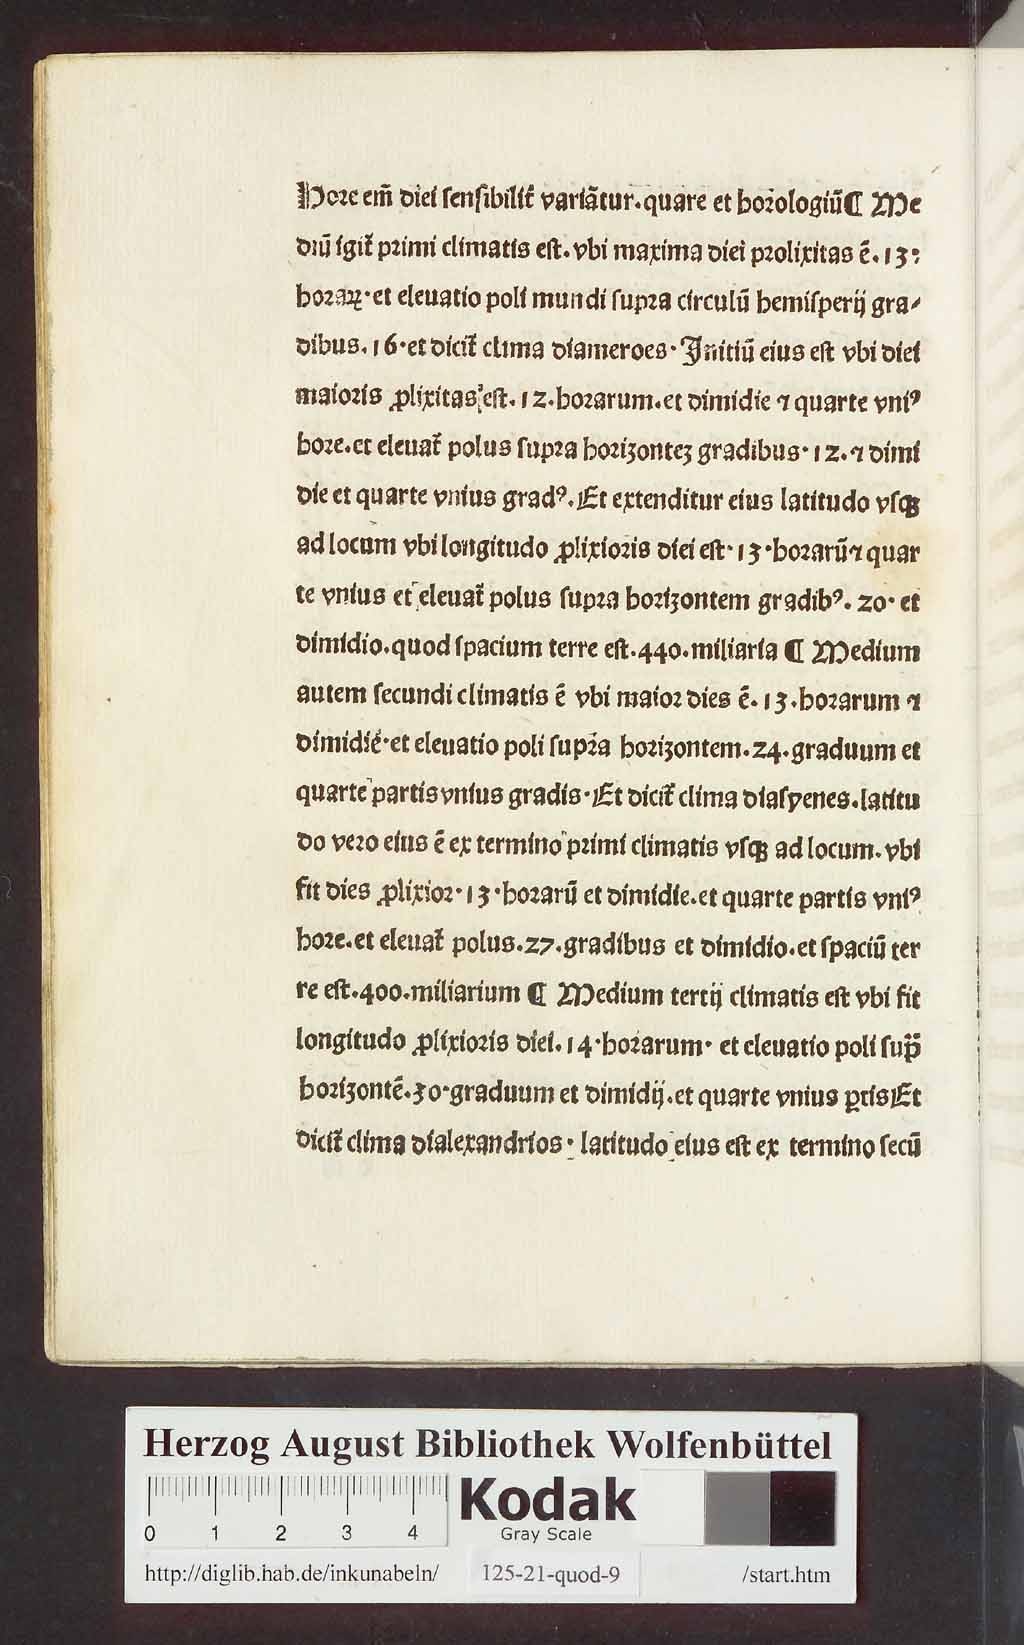 Hore em̄ diei ſenſibilit̄ variātur. quare et horologiū¶ Me
diū igit̄ primi climatis eſt. vbi maxima diei prolixitas ē. 13:
horaꝝ· et eleuatio poli mundi ſupra circulū hemiſperij gra⸗
dibus. 16· et dicit̄ clima diameroes· Initiū eius eſt vbi diei
maioris ꝓlixitas eſt. 12. horarum. et dimidie ⁊ quarte vniꝰ
hore. et eleuat̄ polus ſupra horizonteꝫ gradibus· 12. ⁊ dimi
die et quarte vnius gradꝰ. Et extenditur eius latitudo vſqꝫ
ad locum vbi longitudo ꝓlixioris diei eſt· 13· horarū⁊ quar
te vnius et eleuat̄ polus ſupra horizontem gradibꝰ. 20· et
dimidio. quod ſpacium terre eſt. 440. miliaria ¶ Medium
autem ſecundi climatis ē vbi maior dies ē. 13. horarum ⁊
dimidie· et eleuatio poli ſupra horizontem. 24. graduum et
quarte partis vnius gradis· Et dicit̄ clima diaſyenes. latitu
do vero eius ē ex termino primi climatis vſqꝫ ad locum. vbi
fit dies ꝓlixior· 13· horarū et dimidie. et quarte partis vniꝰ
hore. et eleuat̄ polus. 27. gradibus et dimidio. et ſpaciū ter
re eſt. 400. miliarium ¶ Medium tertij climatis eſt vbi fit
longitudo ꝓlixioris diei. 14· horarum· et eleuatio poli ſup̄
horizontē. 30· graduum et dimidij. et quarte vnius ꝑtis Et
dicit̄ clima dialexandrios· latitudo eius eſt ex termino ſecū
Herzog August Bibliothek Wolfenbüttel
0 1 2 3 4
Kodak
Gray Scale
http://diglib.hab.de/inkunabeln/ 125-21-quod-9 /start.htm